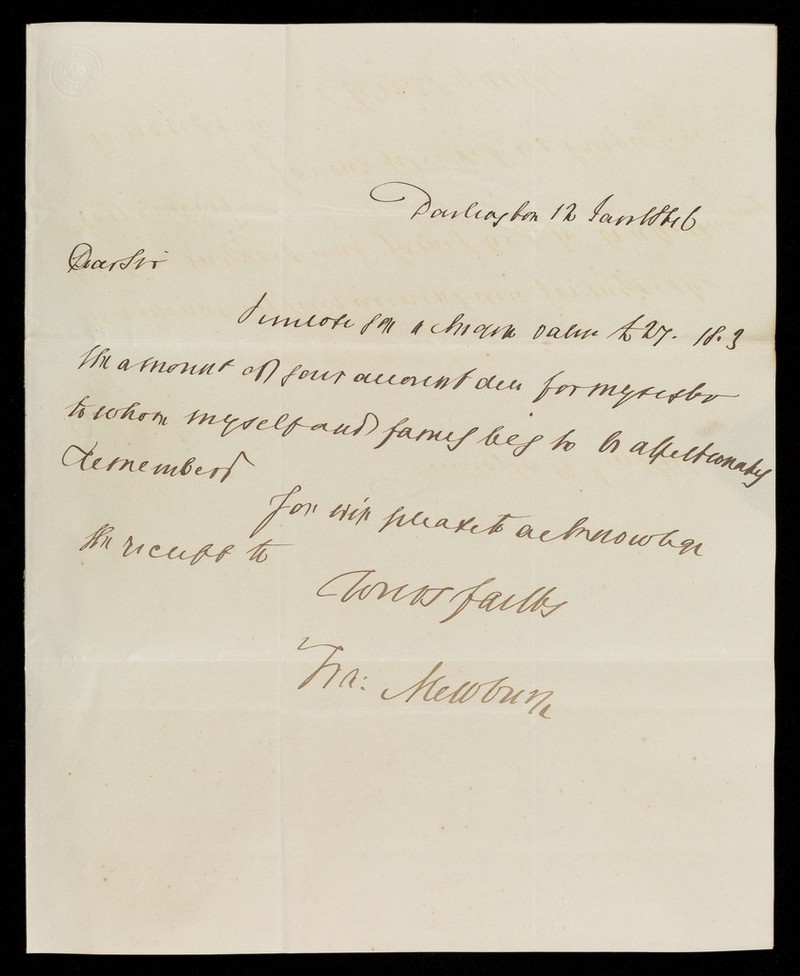 Darlington 12 Jany 1846
Dear Sir
I inclose you a cheque value £27. 18. 3
the amount of your account due for my sister
to whom myself and family beg to be affectionately
Remembered
You will please to acknowledge
the receipt to
Yours faithy
Fra: Mewburn